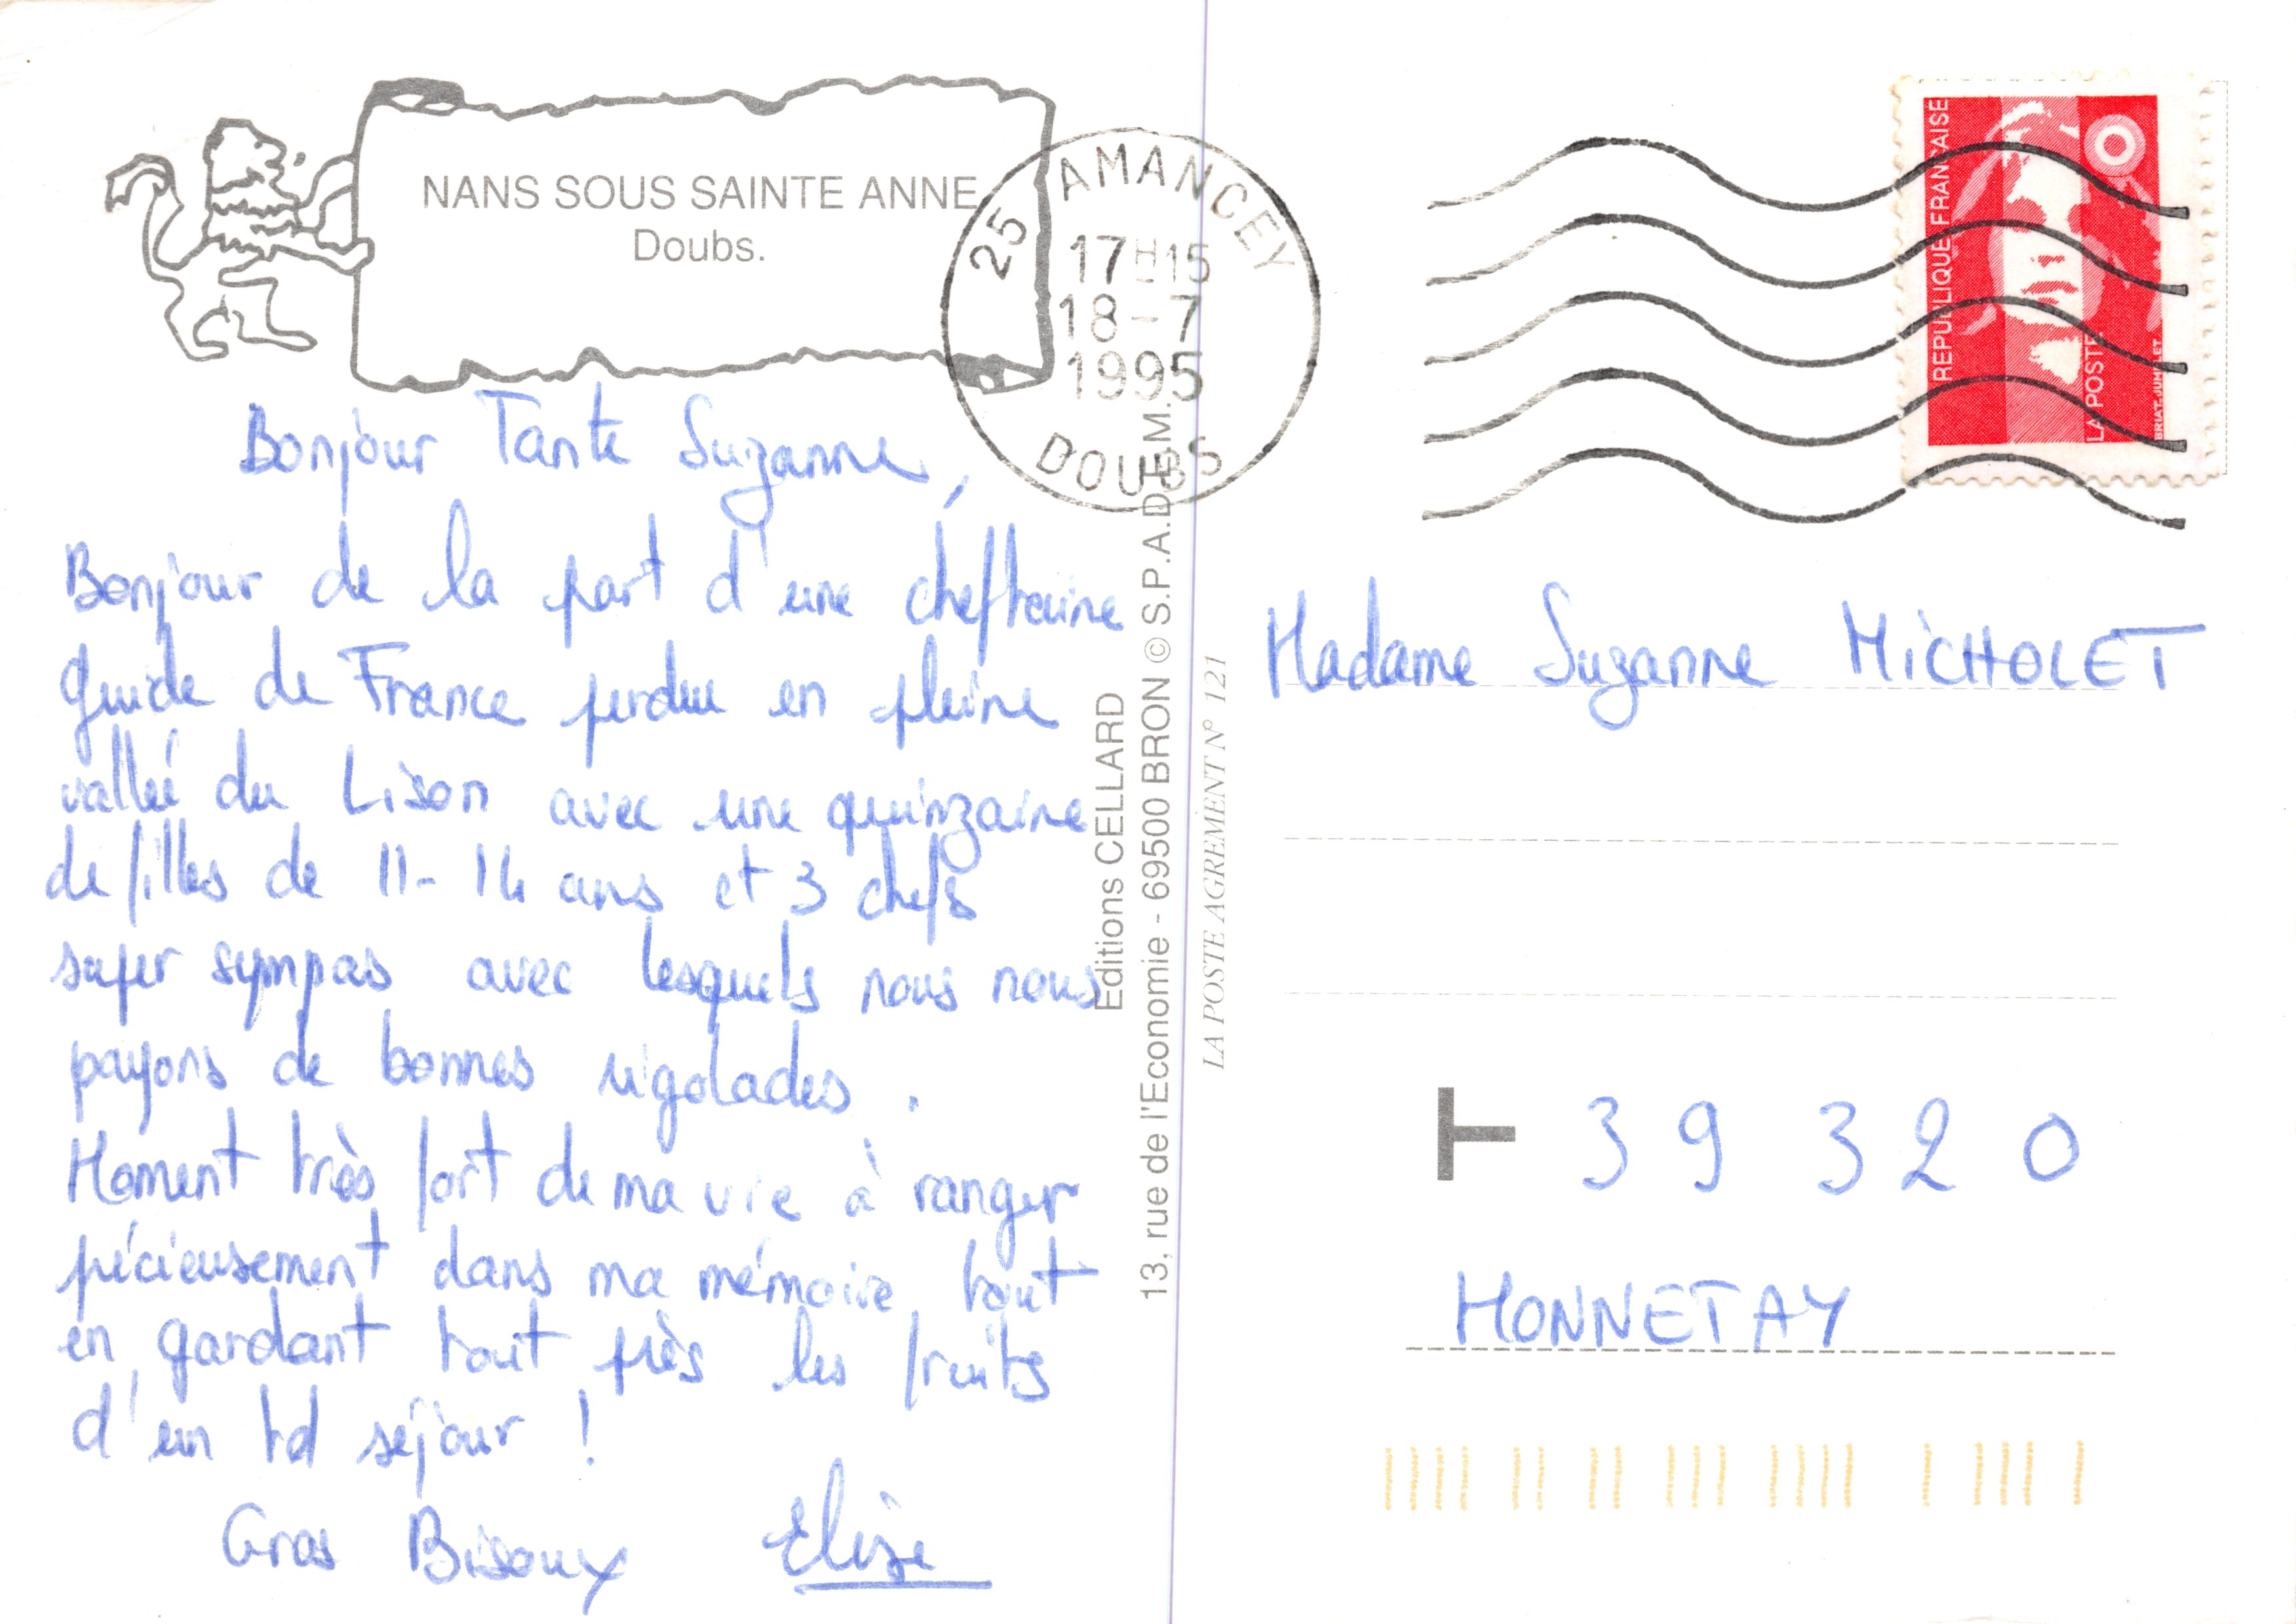 NANS SOUS SAINTE ANNE
Doubs.
25 AMANCEY
17H15
18-7
1995
DOUBS
REPUBLIQUE FRANCAISE
LA POSTE
BRIAT. JUMELET
Bonjour Tante Suzanne,
Bonjour de la part d'une cheftaine
guide de France perdue en pleine
vallée du Lison avec une quinzaine
de filles de 11-14 ans et 3 chefs
super sympas avec lesquels nous nous
payons de bonnes rigolades.
Moment très fort de ma vie à ranger
précieusement dans ma mémoire tout
en gardant tout près les fruits
d'un tel séjour !
Gros Bisoux Elise
Editions CELLARD
13, rue de l'Economie - 69500 BRON © S.P.A.D.E.M.
LA POSTE AGREMENT N° 121
Madame Suzanne MICHOLET
T 39 320
MONNETAY